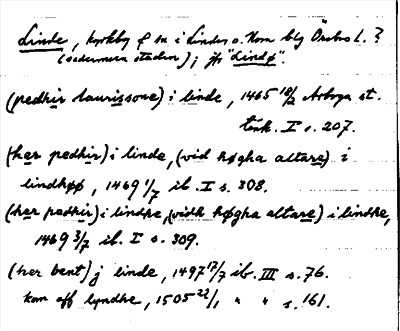 Linde, kyrkby f sn i Lindes o. Nora blg Örebro l. ?
(sedermera staden); jfr "Lindø".
(pedhir laurissone) i linde, 1465 18/2 Arboga st.
tänk. I s. 207.
(her pedhir) i linde, (vid høgha altare) i
lindhøø, 1469 1/7 ib. I s. 308.
(her pedhir) i lindhe, (vidh høgha altare) i lindhe,
1469 3/7 ib. I s. 309.
(her bent) j linde, 1497 17/7 ib. III s. 76.
kom aff lyndhe, 1505 22/1 " " s. 161.